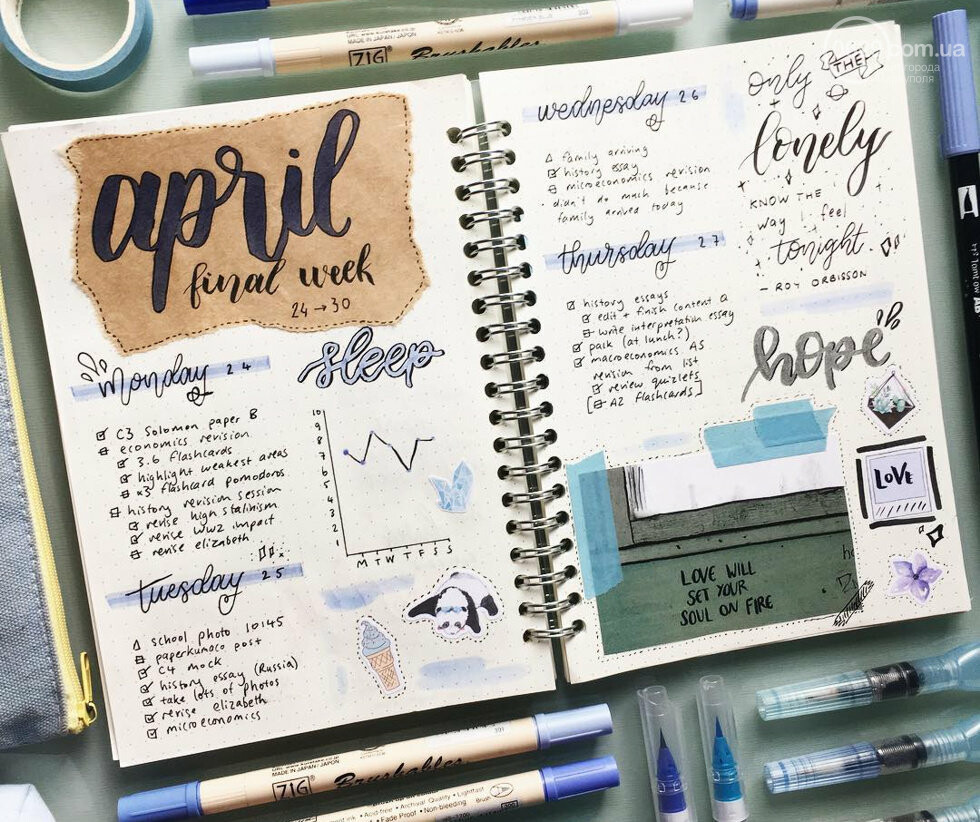 april
final week
24 → 30
monday 24
C3 Solomon paper B
economics revision
3.6 flashcards
highlight weakest areas
x3 flashcard pomodoros
history revision session
revise high stalinism
revise ww2 impact
revise elizabeth
tuesday 25
school photo 10:45
paperkumaco post
C4 mock
history essay (Russia)
take lots of photos
revise elizabeth
microeconomics
sleep
10
9
8
7
6
5
4
3
2
1
M T W T F S S
wednesday 26
family arriving
history essay
microeconomics revision
didn't do much because
family arrived today
thursday 27
history essays
edit + finish content a
write interpretation essay
pack (at lunch?)
macroeconomics AS
revision from list
review quizlets
[A2 flashcards]
only THE
lonely
KNOW THE
way I feel
tonight
- ROY ORBISSON
hope
LOVE
LOVE WILL
SET YOUR
SOUL ON FIRE
MADE IN JAPAN / JAPON
ZIG Brushables
MADE IN JAPAN / JAPON
ZIG Brushables
Acid-free • Archival Quality • Lightfast
Fade Proof • Non-bleeding
.com.ua